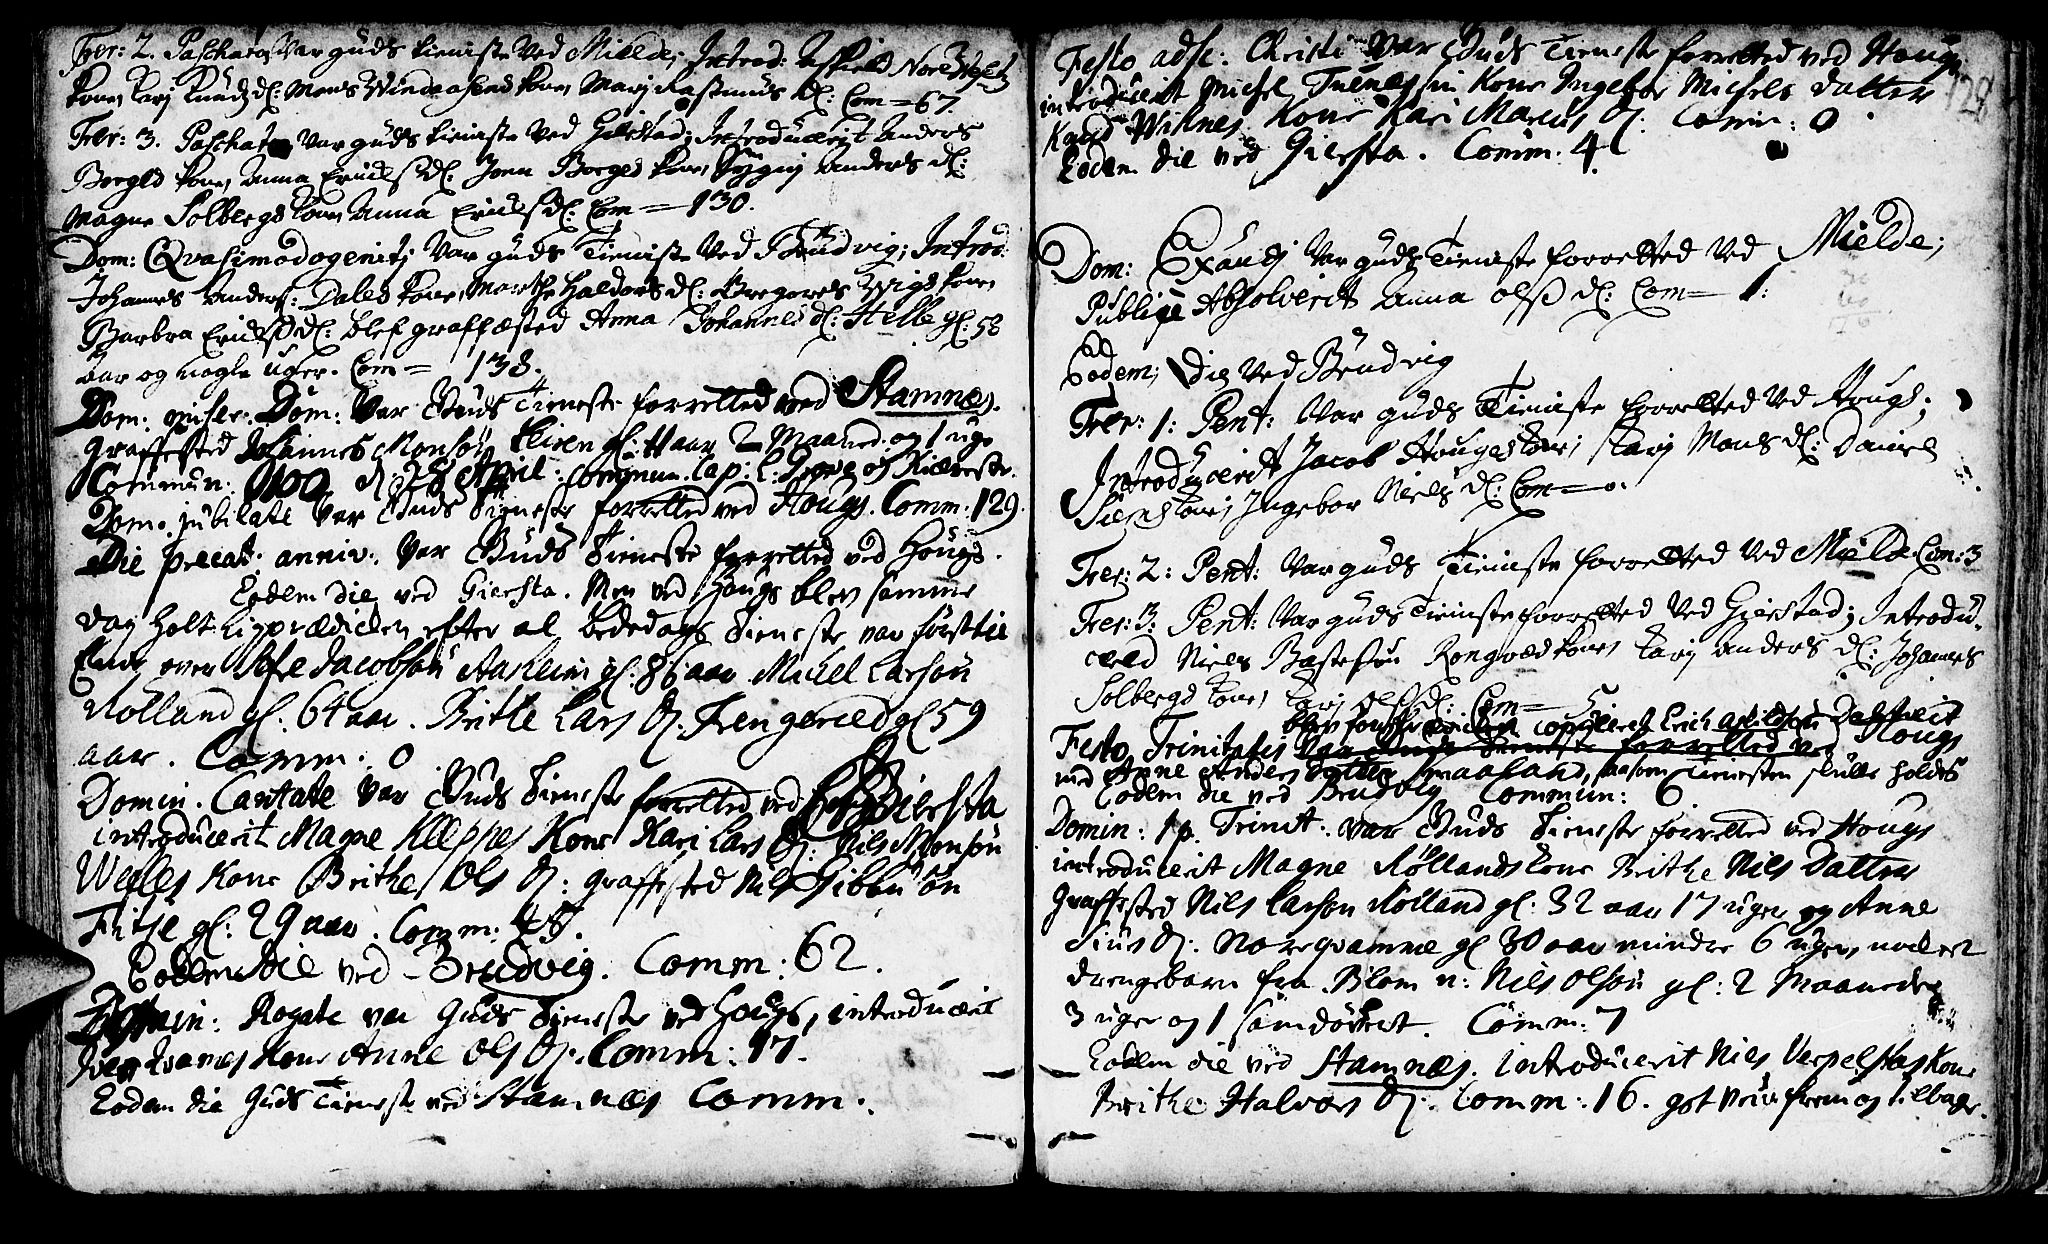 Fer: 2. Paschatos Var guds tieniste Ved Mielde; Introd:
kone, Kari Knuds d: Mons Windenes kone, Mari Rasmus d: Com = 67
Feer: 3. Paschatos var guds tieniste Ved Gierstad; Introducerit Anders
Borges kone, Anna Erichs d: Joen Borges kone, Sygni Anders d:
Magne Solbergs kone Anna Erichs d: Com = 130.
Dom: Qvasimodogenitj Var guds Tieniste Ved Brudvig; Introd:
Johannes Anders: Dales kone, Marthe Haldors d: Gregorius Wiigs kone
Barbra Erichs d: blef graffæsted Anna Johannes d: Helle gl: 58
Aar og nogle uger. Com = 138.
Dom: miser: Dom: Var Guds Tieneste forretted ved Stamnes.
Graffæsted Johannes Monsøn gl: aar 2 Maaned. og 1 uge
Commun: 100 d: 28 April: commun. Cap: L: og Kiereste.
Dom. jubilate Var Guds Tieneste forretted ved Hougs. Comm: 129.
Die precat: anniv: Var Guds Tieneste forretted ved Hougs.
Eodem die ved Giersta. Men ved Hougs blev samme
dag holt Ligprædicken efter at bededags Tieneste var først til
Ende over Ole Jacobsøn Aasheim gl. 86 aar Michel Larsøn
Rolland gl. 64 aar. Brithe Lars D: Fengeried gl 59
aar. Comm. 0
Domin. Cantate Var Guds Tieneste forretted ved Giersta
introducerit Magne Kleppes Kone Kari Lars D: Nils Monsøn
Wefles Kone Brithe Ols D: graffested Nils Gibbusøn
Fitse gl: 29 aar. Comm: 45.
Eodem die ved Brudvig. Comm: 62.
Domin: Rogate var Guds Tieneste ved Hougs, introducerit
Iver Kone Anne Ols D: Comm: 17.
Eodem die Guds Tieneste ved Stamnes Comm.
128
Festo adsc: Christi Var Guds Tieneste forretted ved Hougs
introducerit Michel Tuenes sin Kone Ingebor Michels datter
Knud Wiknes Kone Kari Marcus D: Comm: 0.
Eodem die ved Giersta. Comm: 4
Dom: Exaudj Var guds Tieniste forretted Ved Mielde;
Publiqe Absolverit Anna Ols d: Com = 1:
Eodem; die Ved Brudvig
Feer: 1: Pent: Var guds Tieniste forretted Ved Hougs;
Introducerit Jacob Houges kone; Kari Mons d: Daniel
kone; Ingebor Niels d: Com = 0.
Feer: 2: Pent: Var guds Tieniste forretted Ved Mielde Com: 3
Feer: 3. Pent: Var guds Tieniste forretted Ved Gierstad; Introdu,
cered Niels Rongved kone Kari Anders d: Johannes
Solbergs kone Kari Ols d: Com = 5:
blev copulerit Erich Askildsøn
Festo Trinitatis Var Guds Tieneste forretted ved Hougs
med Anne Anders datter saasom Tienesten skulle holdes
Eodem die ved Brudvig Commun: 6
Domin: 1 p. Trinit: var Guds Tieneste forretted ved Hougs
introducerit Magne Röllands kone Brithe Nils Datter
Graffested Nils Larsøn Rölland gl: 32 aar 17 uger og Anne
Siurs D: Norequamme gl 30 aar mindre 6 uger, noch et
drengebarn fra Blom n: Nils Olsøn gl: 2 Maaneder
3 uger og 1 Comm: 7
Eodem die ved Stamnes. introducerit Nils Kone
Brithe Halvors D: Comm: 16. got veir frem og tilbage.